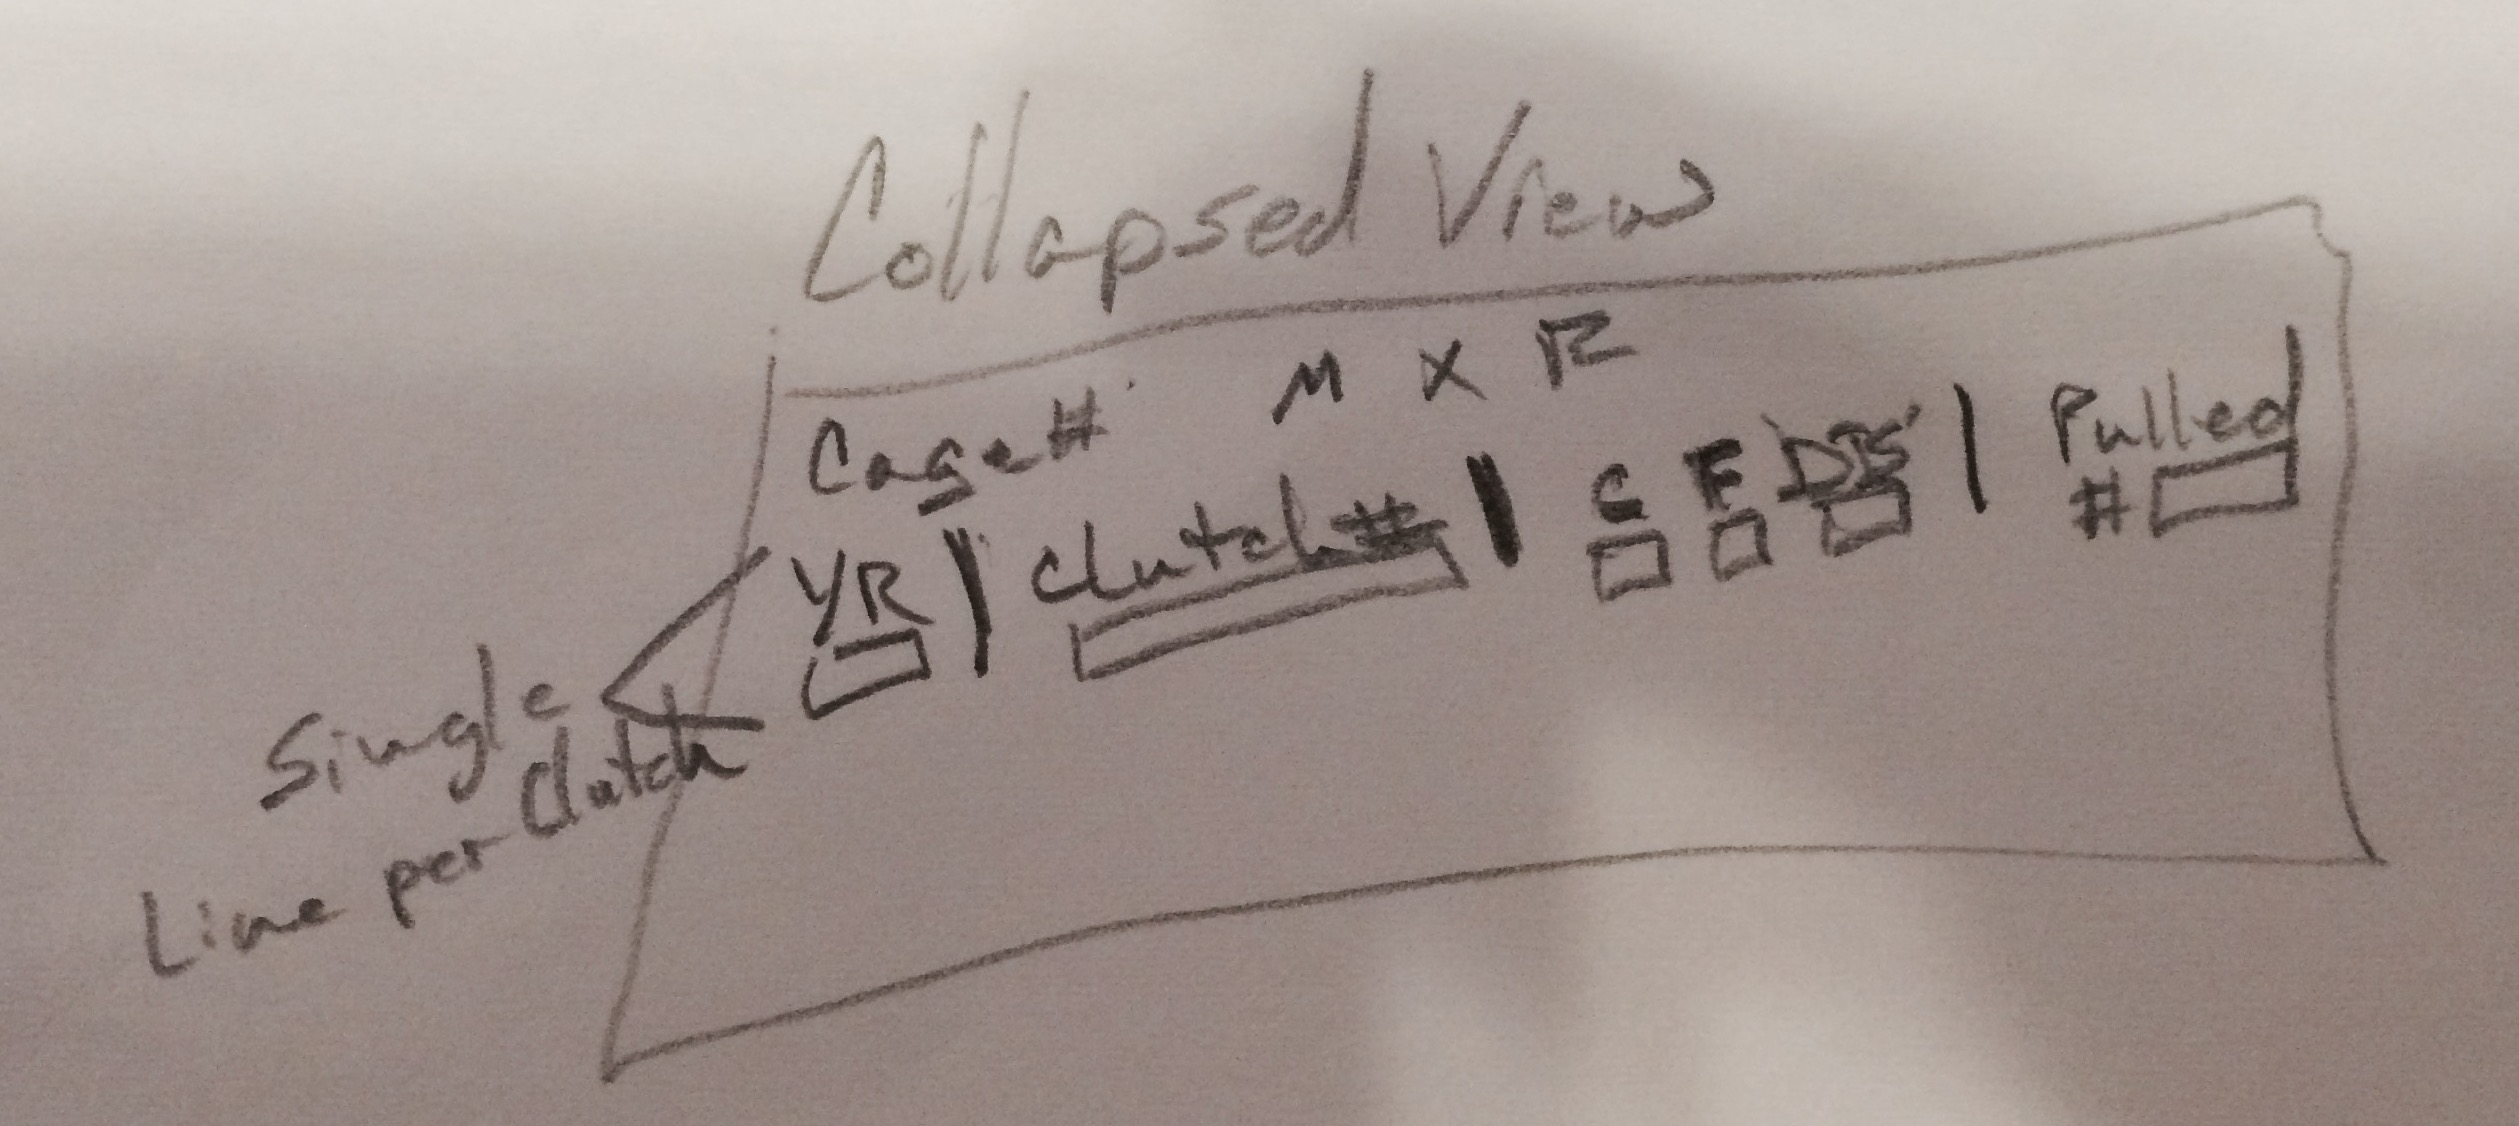 Collapsed View
Cage# M X F
YR | Clutch# | C F DIS | Pulled
#
Single
Line per Clutch